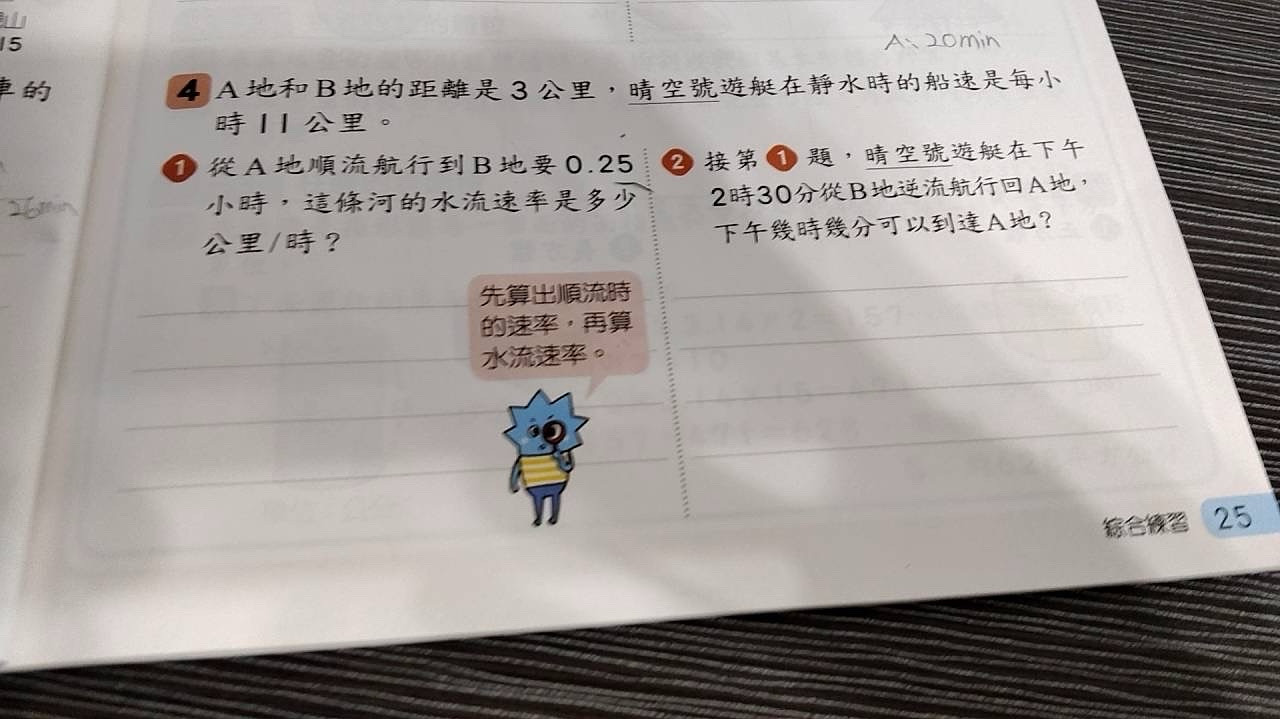 山
15
車的
26min
A、20min
4 A地和B地的距離是3公里，晴空號遊艇在靜水時的船速是每小
時11公里。
1 從A地順流航行到B地要0.25
小時，這條河的水流速率是多少
公里/時？
先算出順流時
的速率，再算
水流速率。
2 接第1題，晴空號遊艇在下午
2時30分從B地逆流航行回A地，
下午幾時幾分可以到達A地？
綜合練習 25